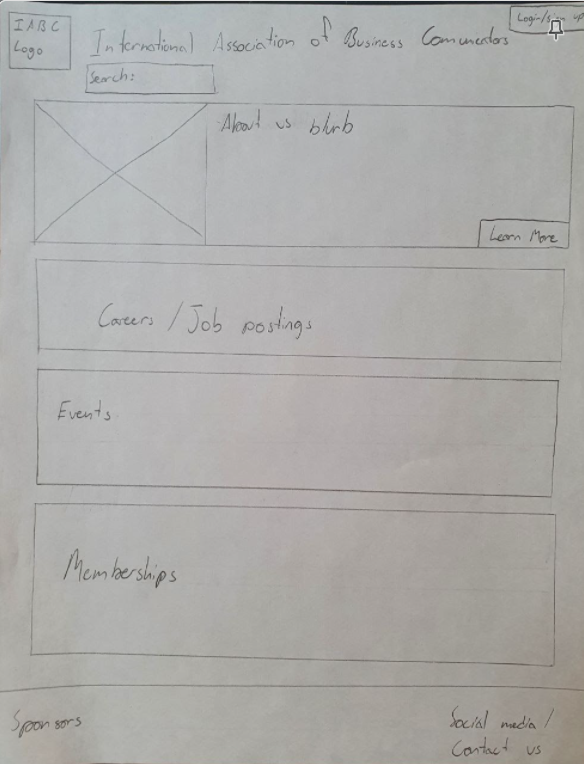 IABC
Logo
International Association of Business Communcators
Login/Sign up
Search:
About us blurb
Learn More
Careers / Job postings
Events
Memberships
Sponsors
Social media /
Contact us